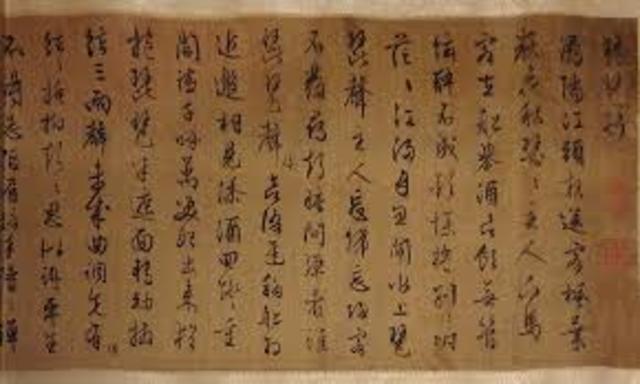 琵琶行
潯陽江頭夜送客楓葉
荻花秋瑟〻主人下馬
客在船舉酒欲飲無管
絃醉不成歡慘將別〻時
茫〻江浸月忽聞水上琵
琶聲主人忘歸客
不發尋聲暗問彈者誰
琵琶聲欲語遲移船相
近邀相見添酒回燈重
開宴千呼萬喚始出來猶
抱琵琶半遮面轉軸撥
絃三兩聲未成曲調先有
絃掩抑聲〻思似訴平生
不得志低眉信手續〻彈